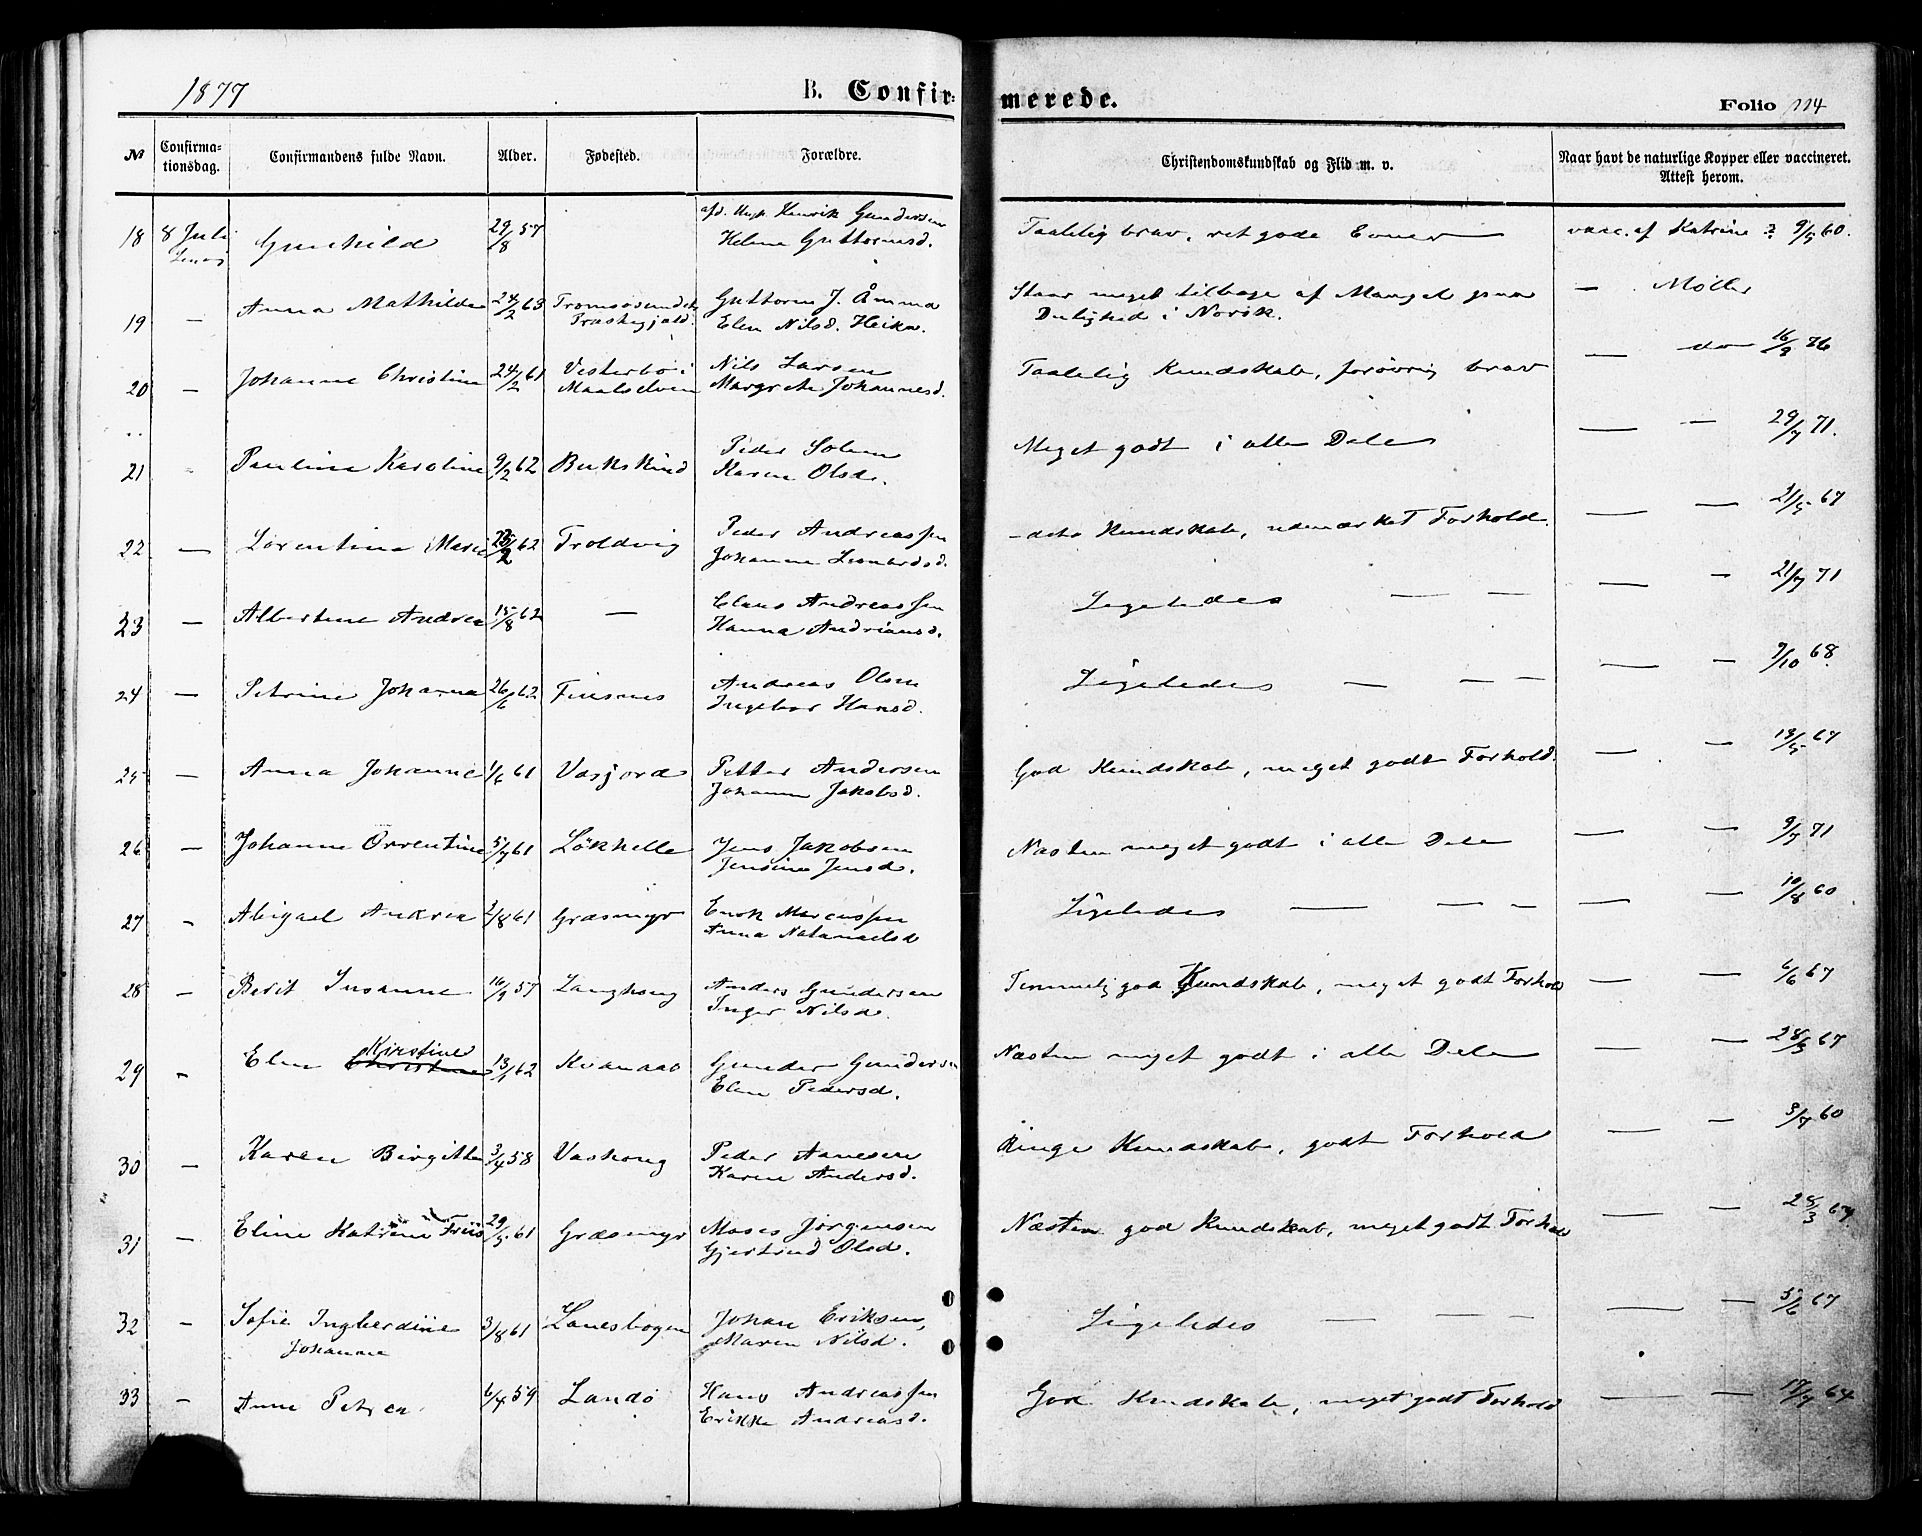 1877
B. Confir-
merede.
Folio 114
№
Confirma-
tionsdag.
Confirmandens fulde Navn.
Alder.
Fødested.
Forældre.
Christendomskundskab og Flid m. v.
Naar havt de naturlige Kopper eller vaccineret.
Attest herom.
18 8 Juli Gunhild 29/8 57 Henrik Gundersen
Helene Guttormsd. Taalelig brav, ret gode Evner vacc. af Katrine ? 9/5 60.
19 — Anna Mathilde 24/2 63 Tromsøsundets Guttorm J. Åmma Staar meget tilbage af Mangel paa — Møller
Præstegjæld. Elen Nilsd. Heika. Duelighed i Norsk.
20 — Johanne Christine 24/2 61 Vesterbø i Nils Larsen Taalelig Kundskab, forøvrig brav — do 16/9 76
Maalselven Margrete Johannesd.
21 Pauline Karoline 9/2 62 Bukskind Peder Solem Meget godt i alle Dele — — 29/7 71.
Karen Olsd.
22 — Lorentine Marie 62 Troldvig Peder Andreassen -deto Kundskab, udmærket Forhold. — — 21/5 67
Johanne Leonardsd.
23 — Albertine Andrea 15/8 62 — Claus Andreassen Ligeledes — — — — 21/7 71
Hanna Andriansd.
24 — Petrine Johanna 26/6 62 Finsnes Andreas Olsen Ligeledes — — — — — 9/10 68.
Ingebor Hansd.
25 — Anna Johanne 1/6 61 Vasjord Petter Andersen God Kundskab, meget godt Forhold. — — 13/5 67
Johanna Jakobsd.
26 — Johanne Orrentine 5/7 61 Løkhelle Jens Jakobsen Næsten meget godt i alle Dele — — 9/7 71
Jensine Jensd.
27 - Abigael Andrea 2/8 61 Græsmyr Enok Marcussen Ligeledes — — — — — 10/8 60
Anna Natanaelsd
28 - Berit Susanne 16/9 57 Langhong Anders Gundersen Temmelig god Kundskab, meget godt Forhold — — 6/6 67
Inger Nilsd.
Kirstine
29 - Elen Christine 62 Kvanaas Gunder Gundersen Næsten meget godt i alle Dele — — 28/3 67
Elen Pedersd.
30 — Karen Birgitte 3/4 58 Vashong Peder Aanesen Ringe Kundskab, godt Forhold — — 3/7 60
Karen Andersd.
31 — Eline Katrine Friis 29/5 61 Græsmyr Moses Jørgensen Næsten god Kundskab, meget godt Forhold — — 28/3 67.
Gjertrud Olsd.
32 — Sofie Ingberdine 3/8 61 Lanesbogen Johan Eriksen, Ligeledes — — — — — 5/6 67
Johanna Maren Nilsd.
33 - Anne Petrea 6/4 59 Landø Hans Andreassen God Kundskab, meget godt Forhold — — 17/7 64
Erikke Andreasd.